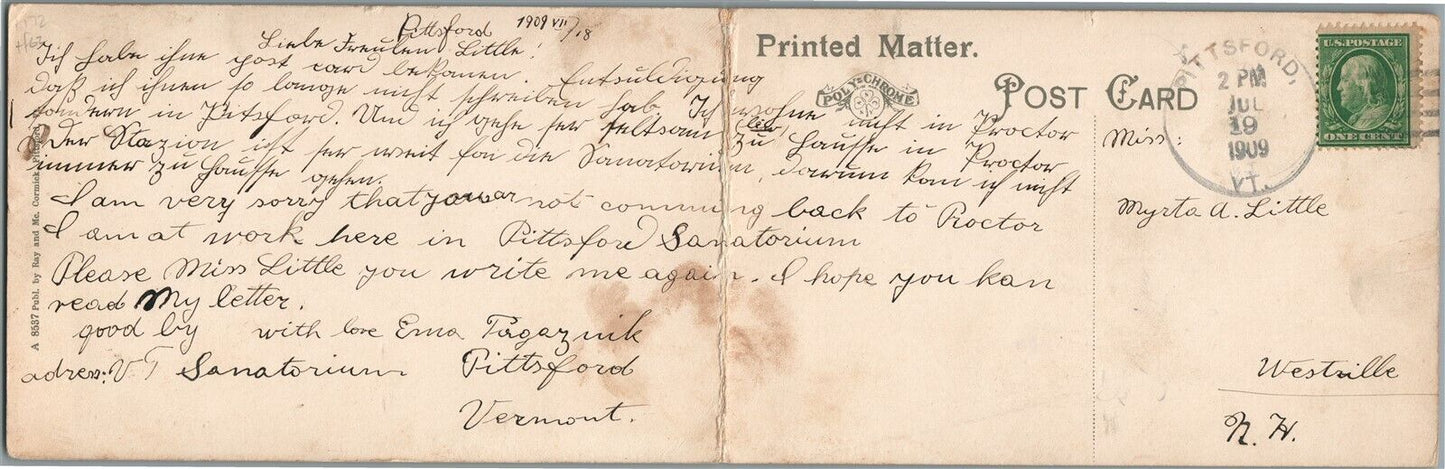 Pittsford 1909 VII/18
Liebe Freulen Little!
Ich habe ihne post card bekomen. Entsuldigung
daß ich ihnen so lange nicht schreiben hab. Ich wohne nicht in Proctor
sondern in Pitsford. Und ich gehe ser seltsam zu Hausse in Proctor
Der Stazion ist ser weit fon die Sanatorium, darum kan ich nicht
immer zu Hausse gehen.
I am very sorry that you ar not comming back to Proctor
I am at work here in Pittsford Sanatorium
Please Miss Little you write me again. I hope you kan
read My letter.
good by with love Erna
adres: VT Sanatorium Pittsford
Vermont.
A 8537 Publ. by Ray and Mc. Cormick, Pittsford
Printed Matter.
POLY-CHROME
POST CARD
PITTSFORD,
2 PM
JUL
19
1909
VT.
U.S. POSTAGE
ONE CENT
Miss:
Myrta A. Little
Westville
N. H.